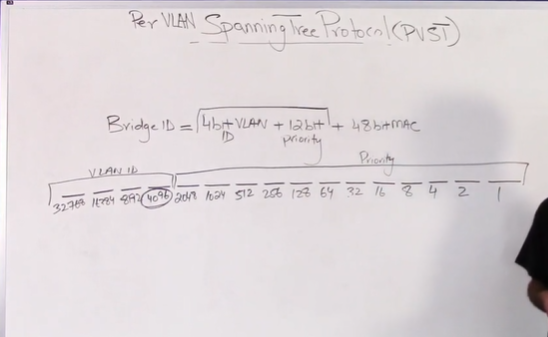 Per VLAN Spanning Tree Protocol (PVST)
Bridge ID = 4bit VLAN ID + 12bit priority + 48bit MAC
VLAN ID Priority
32768 16384 8192 4096 2048 1024 512 256 128 64 32 16 8 4 2 1